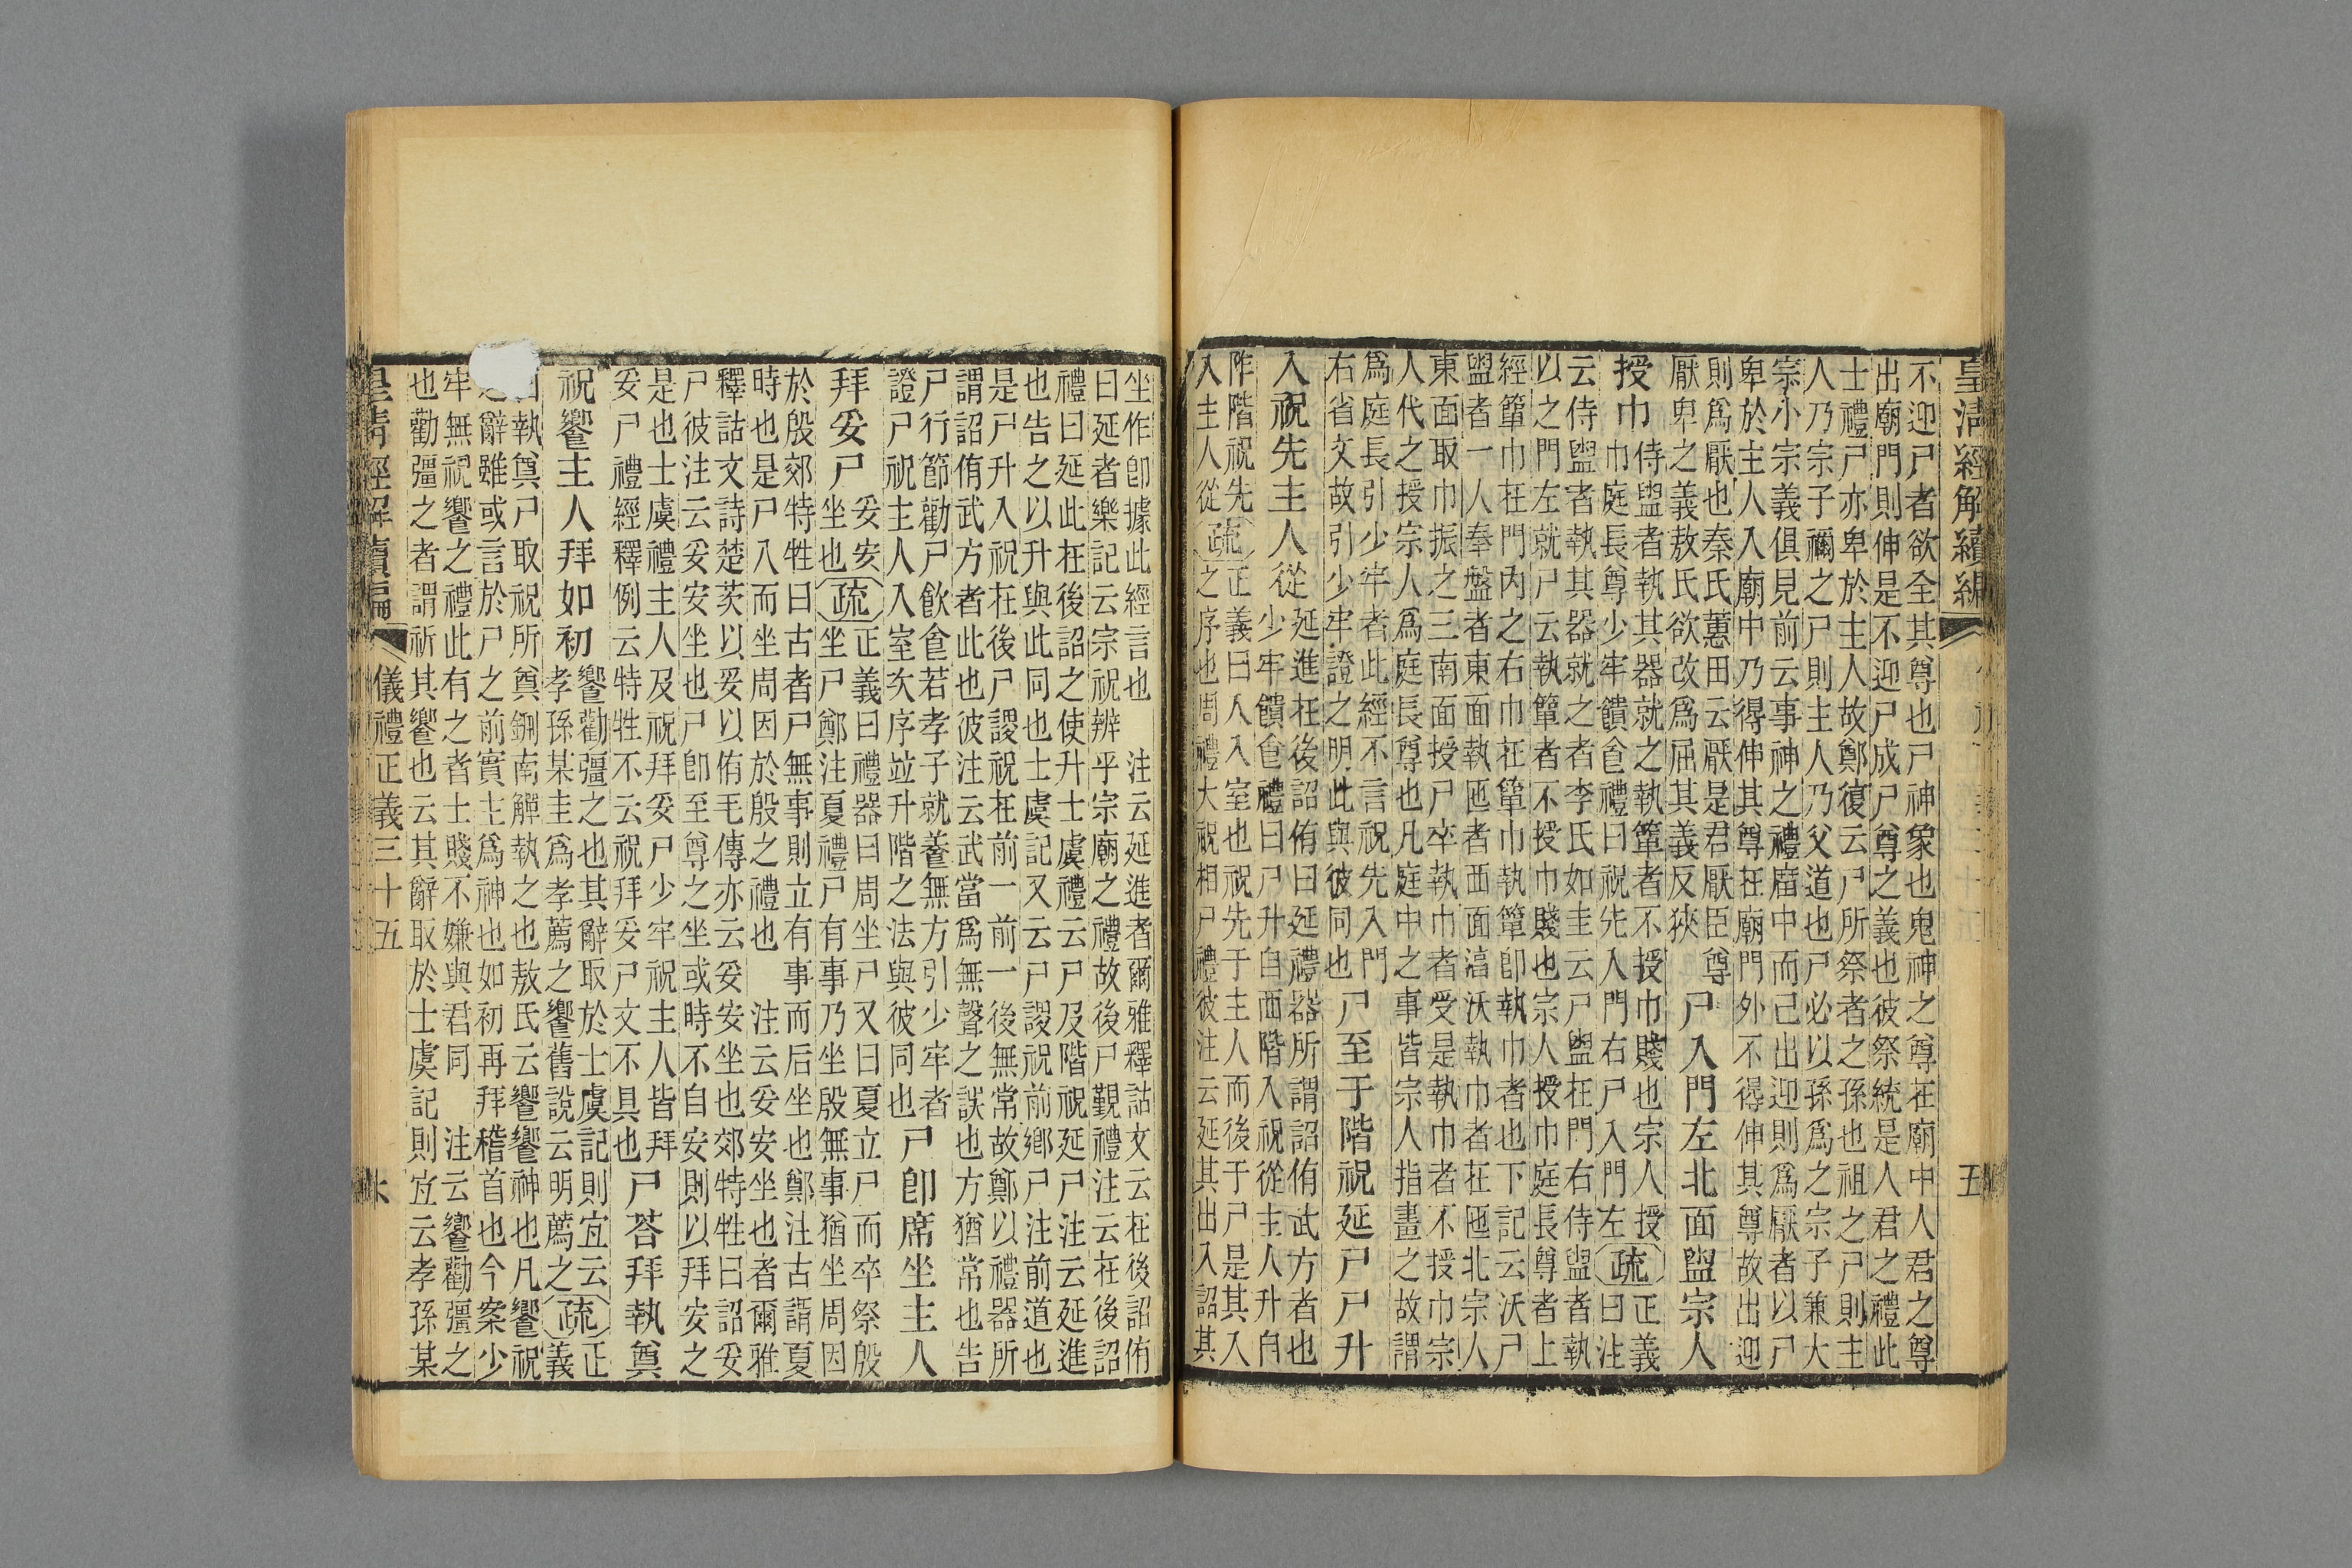 皇清經解續編
五
不迎尸者欲全其尊也尸神象也鬼神之尊在廟中人君之尊
出廟門則伸是不迎尸成尸尊之義也彼祭統是人君之禮此
士禮尸亦卑於主人故鄭復云尸所祭者之孫也祖之尸則主
人乃宗子禰之尸則主人乃父道也尸必以孫爲之宗子兼大
宗小宗義俱見前云事神之禮廟中而已出迎則爲厭者以尸
卑於主人入廟中乃得伸其尊在廟門外不得伸其尊故出迎
則爲厭也秦氏蕙田云厭是君厭臣尊
厭卑之義敖氏欲改爲屈其義反狹
尸入門左北面盥宗人
授巾
侍盥者執其器就之執簞者不授巾賤也宗人授
巾庭長尊少牢饋食禮曰祝先入門右尸入門左
疏
正義
曰注
云侍盥者執其器就之者李氏如圭云尸盥在門右侍盥者執
以之門左就尸云執簞者不授巾賤也宗人授巾庭長尊者上
經簞巾在門內之右巾在簞巾執簞卽執巾者也下記云沃尸
盥者一人奉盤者東面執匜者西面淯沃執巾者在匜北宗人
東面取巾振之三南面授尸卒執巾者受是執巾者不授巾宗
人代之授宗人爲庭長尊也凡庭中之事皆宗人指畫之故謂
爲庭長引少牢者此經不言祝先入門
右省文故引少牢證之明此與彼同也
尸至于階祝延尸尸升
入祝先主人從
延進在後詔侑曰延禮器所謂詔侑武方者也
少牢饋食禮曰尸升自西階入祝從主人升自
阼階祝先
入主人從
疏
正義曰人入室也祝先于主人而後于尸是其入
之序也周禮大祝相尸禮彼注云延其出入詔其
坐作卽據此經言也　注云延進者爾雅釋詁文云在後詔侑
曰延者樂記云宗祝辨乎宗廟之禮故後尸覲禮注云在後詔
禮曰延此在後詔之使升士虞禮云尸及階祝延尸注云延進
也告之以升與此同也士虞記又云尸謖祝前鄉尸注前道也
是尸升入祝在後尸謖祝在前一前一後無常故鄭以禮器所
謂詔侑武方者此也彼注云武當爲無聲之誤也方猶常也告
尸行節勸尸飲食若孝子就養無方引少牢者
證尸祝主人入室次序竝升階之法與彼同也
尸卽席坐主人
拜妥尸
妥安
坐也
疏
正義曰禮器曰周坐尸又曰夏立尸而卒祭殷
坐尸鄭注夏禮尸有事乃坐殷無事猶坐周因
於殷郊特牲曰古者尸無事則立有事而后坐也鄭注古謂夏
時也是尸入而坐周因於殷之禮也　注云妥安坐也者爾雅
釋詁文詩楚茨以妥以侑毛傳亦云妥安坐也郊特牲曰詔妥
尸彼注云妥安坐也尸卽至尊之坐或時不自安則以拜安之
是也士虞禮主人及祝拜妥尸少牢祝主人皆拜
妥尸禮經釋例云特牲不云祝拜妥尸文不具也
尸荅拜執奠
祝饗主人拜如初
饗勸彊之也其辭取於士虞記則宜云
孝孫某圭爲孝薦之饗舊說云明薦之
疏
正
義
執奠尸取祝所奠鉶南觶執之也敖氏云饗饗神也凡饗祝
辭雖或言於尸之前實主爲神也如初再拜稽首也今案少
牢無祝饗之禮此有之者士賤不嫌與君同　注云饗勸彊之
也勸彊之者謂祈其饗也云其辭取於士虞記則宜云孝孫某
皇清經解續編
儀禮正義三十五